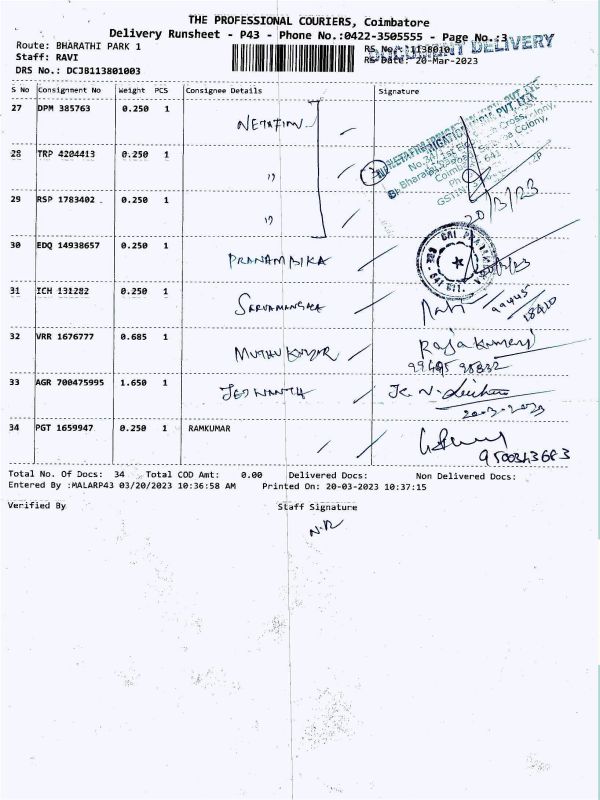 THE PROFESSIONAL COURIERS, Coimbatore
Delivery Runsheet - P43 - Phone No.:0422-3505555 - Page No.:3
Route: BHARATHI PARK 1
RS No.: 1138010
DOCUMENT DELIVERY
Staff: RAVI
RS Date: 20-Mar-2023
DRS No.: DCJB113801003
S No Consignment No Weight PCS Consignee Details Signature
27 DPM 385763 0.250 1 NETAFIM
28 TRP 4204413 0.250 1 "
29 RSP 1783402 . 0.250 1 "
20/3/23
30 EDQ 14938657 0.250 1 PRANAMBIKA
31 ICH 131282 0.250 1 SARVAMANGALA
99445
18410
32 VRR 1676777 0.685 1 MUTHU KUMAR Rajakumari
33 AGR 700475995 1.650 1 JESWANTH
20-03-2023
34 PGT 1659947 0.250 1 RAMKUMAR
9500343683
Total No. Of Docs: 34 Total COD Amt: 0.00 Delivered Docs: Non Delivered Docs:
Entered By :MALARP43 03/20/2023 10:36:58 AM Printed On: 20-03-2023 10:37:15
Verified By Staff Signature
N.R